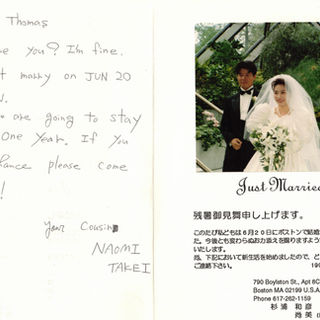 Thomas
you? I'm fine.
marry on JUN 20
are going to stay
One Year. If you
please come
!
your Cousin
NAOMI
TAKEI
Just Married
残暑御見舞申し上げます。
このたび私どもは6月20日にボストンで結婚
た。今後とも変わらぬお力添えを賜りますよう
いたします。
尚、下記において新生活を始めましたので、ど
ご連絡下さい。 199
790 Boylston St., Apt 6C
Boston MA 02199 U.S.A.
Phone 617-262-1159
杉浦 和彦